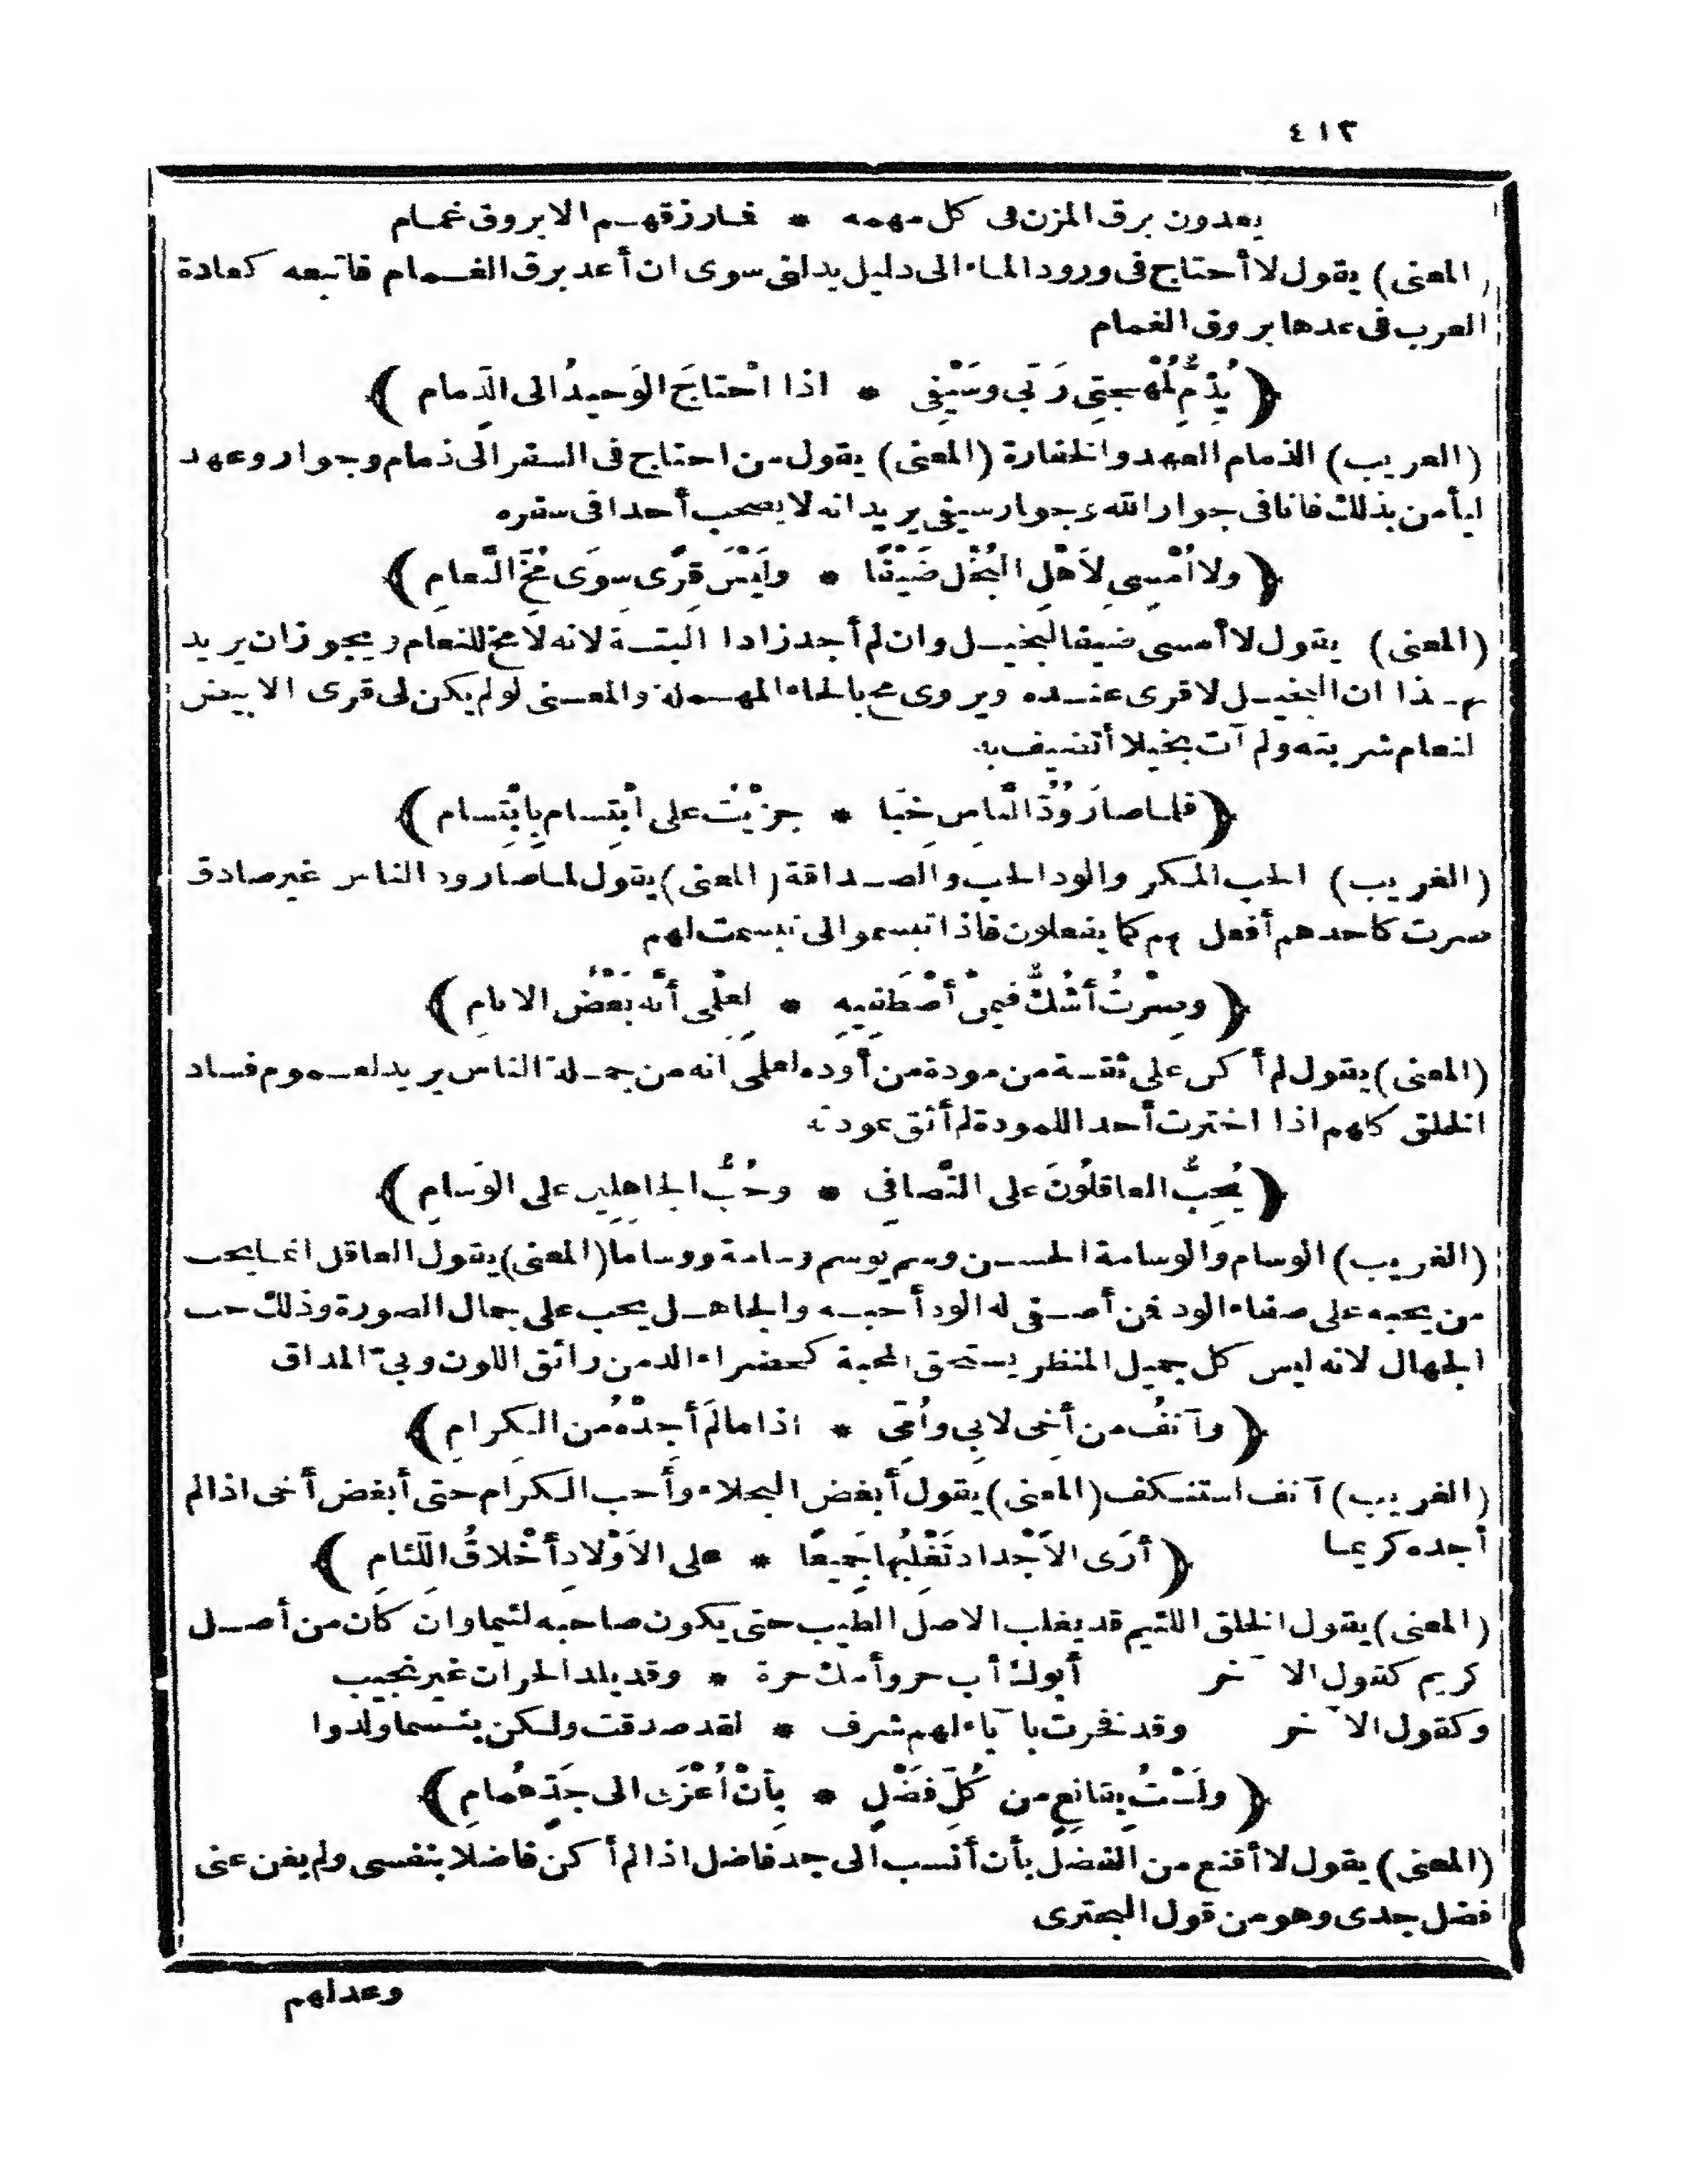 ٤١٢
يعدون برق المزن فى كل مهمه * فمارزقهم الابروق غمام
(المعنى) يقول لا أحتاج فى ورود الماء الى دليل يدلنى سوى ان أعد برق الغمام فاتبعه كعادة
العرب فى عدها بروق الغمام
﴿ يُذِمُّ لُمهْجتِى رَبّى وسَيْفِى * اذا احْتاجَ الوَحيدُ الى الذِّمام ﴾
(الغريب) الذمام العهد والخفارة (المعنى) يقول من احتاج فى السفر الى ذمام وجوار وعهد
ليأمن بذلك فانا فى جوار الله وجوار سيفى يريد انه لا يصحب أحدا فى سفره
﴿ ولا اُمْسِى لِاَهْلِ البُخْلِ ضَيْفًا * ولَيْسَ قِرًى سِوَى مُخِّ النَّعامِ ﴾
(المعنى) يقول لا أمسى ضيفا لبخيل وان لم أجد زادا البتة لانه لا مخ للنعام ويجوز ان يريد
بهذا ان البخيل لا قرى عنده ويروى مح بالحاء المهملة والمعنى لو لم يكن لى قرى الا بيض
لنعام شربته ولم آت بخيلا أتضيف به
﴿ فلما صارَ وُدُّ النّاسِ خِبّا * جزَيْتُ على ابْتِسام بِابْتِسام ﴾
(الغريب) الخب المكر والود الحب والصداقة (المعنى) يقول لما صار ود الناس غير صادق
صرت كاحدهم أفعل بهم كما يفعلون فاذا تبسموا لى تبسمت لهم
﴿ وصِرْتُ أشُكُّ فيمنْ أصْطَفِيهِ * لِعِلْمِى أنَّه بَعْضُ الانامِ ﴾
(المعنى) يقول لم أكن على ثقة من مودة من أوده لعلمى انه من جملة الناس يريد لعموم فساد
الخلق كلهم اذا اخترت أحدا للمودة لم أثق بمودته
﴿ يُحِبُّ العاقلُونَ على التّصافِى * وحُبُّ الجاهِلِين على الوَسامِ ﴾
(الغريب) الوسام والوسامة الحسن وسم يوسم وسامة ووساما (المعنى) يقول العاقل انما يحب
من يحبه على صفاء الود فمن أصفى له الود أحبه والجاهل يحب على جمال الصورة وذلك حب
الجهال لانه ليس كل جميل المنظر يستحق المحبة كخضراء الدمن رائق اللون وبىّ المذاق
﴿ وآنَفُ من أخِى لابى واُمّى * اذا مالَم أجِدْهُ من الكِرامِ ﴾
(الغريب) آنف استنكف (المعنى) يقول أبغض البخلاء وأحب الكرام حتى أبغض أخى اذا لم
أجده كريما ﴿ أرَى الاَجْدادَ تَغْلِبُها جَميعًا * على الاَوْلادِ أخْلاقُ اللّئامِ ﴾
(المعنى) يقول الخلق اللئيم قد يغلب الاصل الطيب حتى يكون صاحبه لئيما وان كان من أصل
كريم كقول الآخر أبوك أب حر وأمك حرة * وقد يلد الحران غير نجيب
وكقول الآخر وقد نفخرت بآباء لهم شرف * لقد صدقت ولكن بئسما ولدوا
﴿ ولَسْتُ بِقانِعٍ من كُلِّ فَضْلٍ * بِأنْ اُعْزَى الى جَدٍّ هُمامِ ﴾
(المعنى) يقول لا أقنع من الفضل بأن أنسب الى جد فاضل اذا لم أكن فاضلا بنفسى ولم يغن عنى
فضل جدى وهو من قول البحترى
وعدلهم